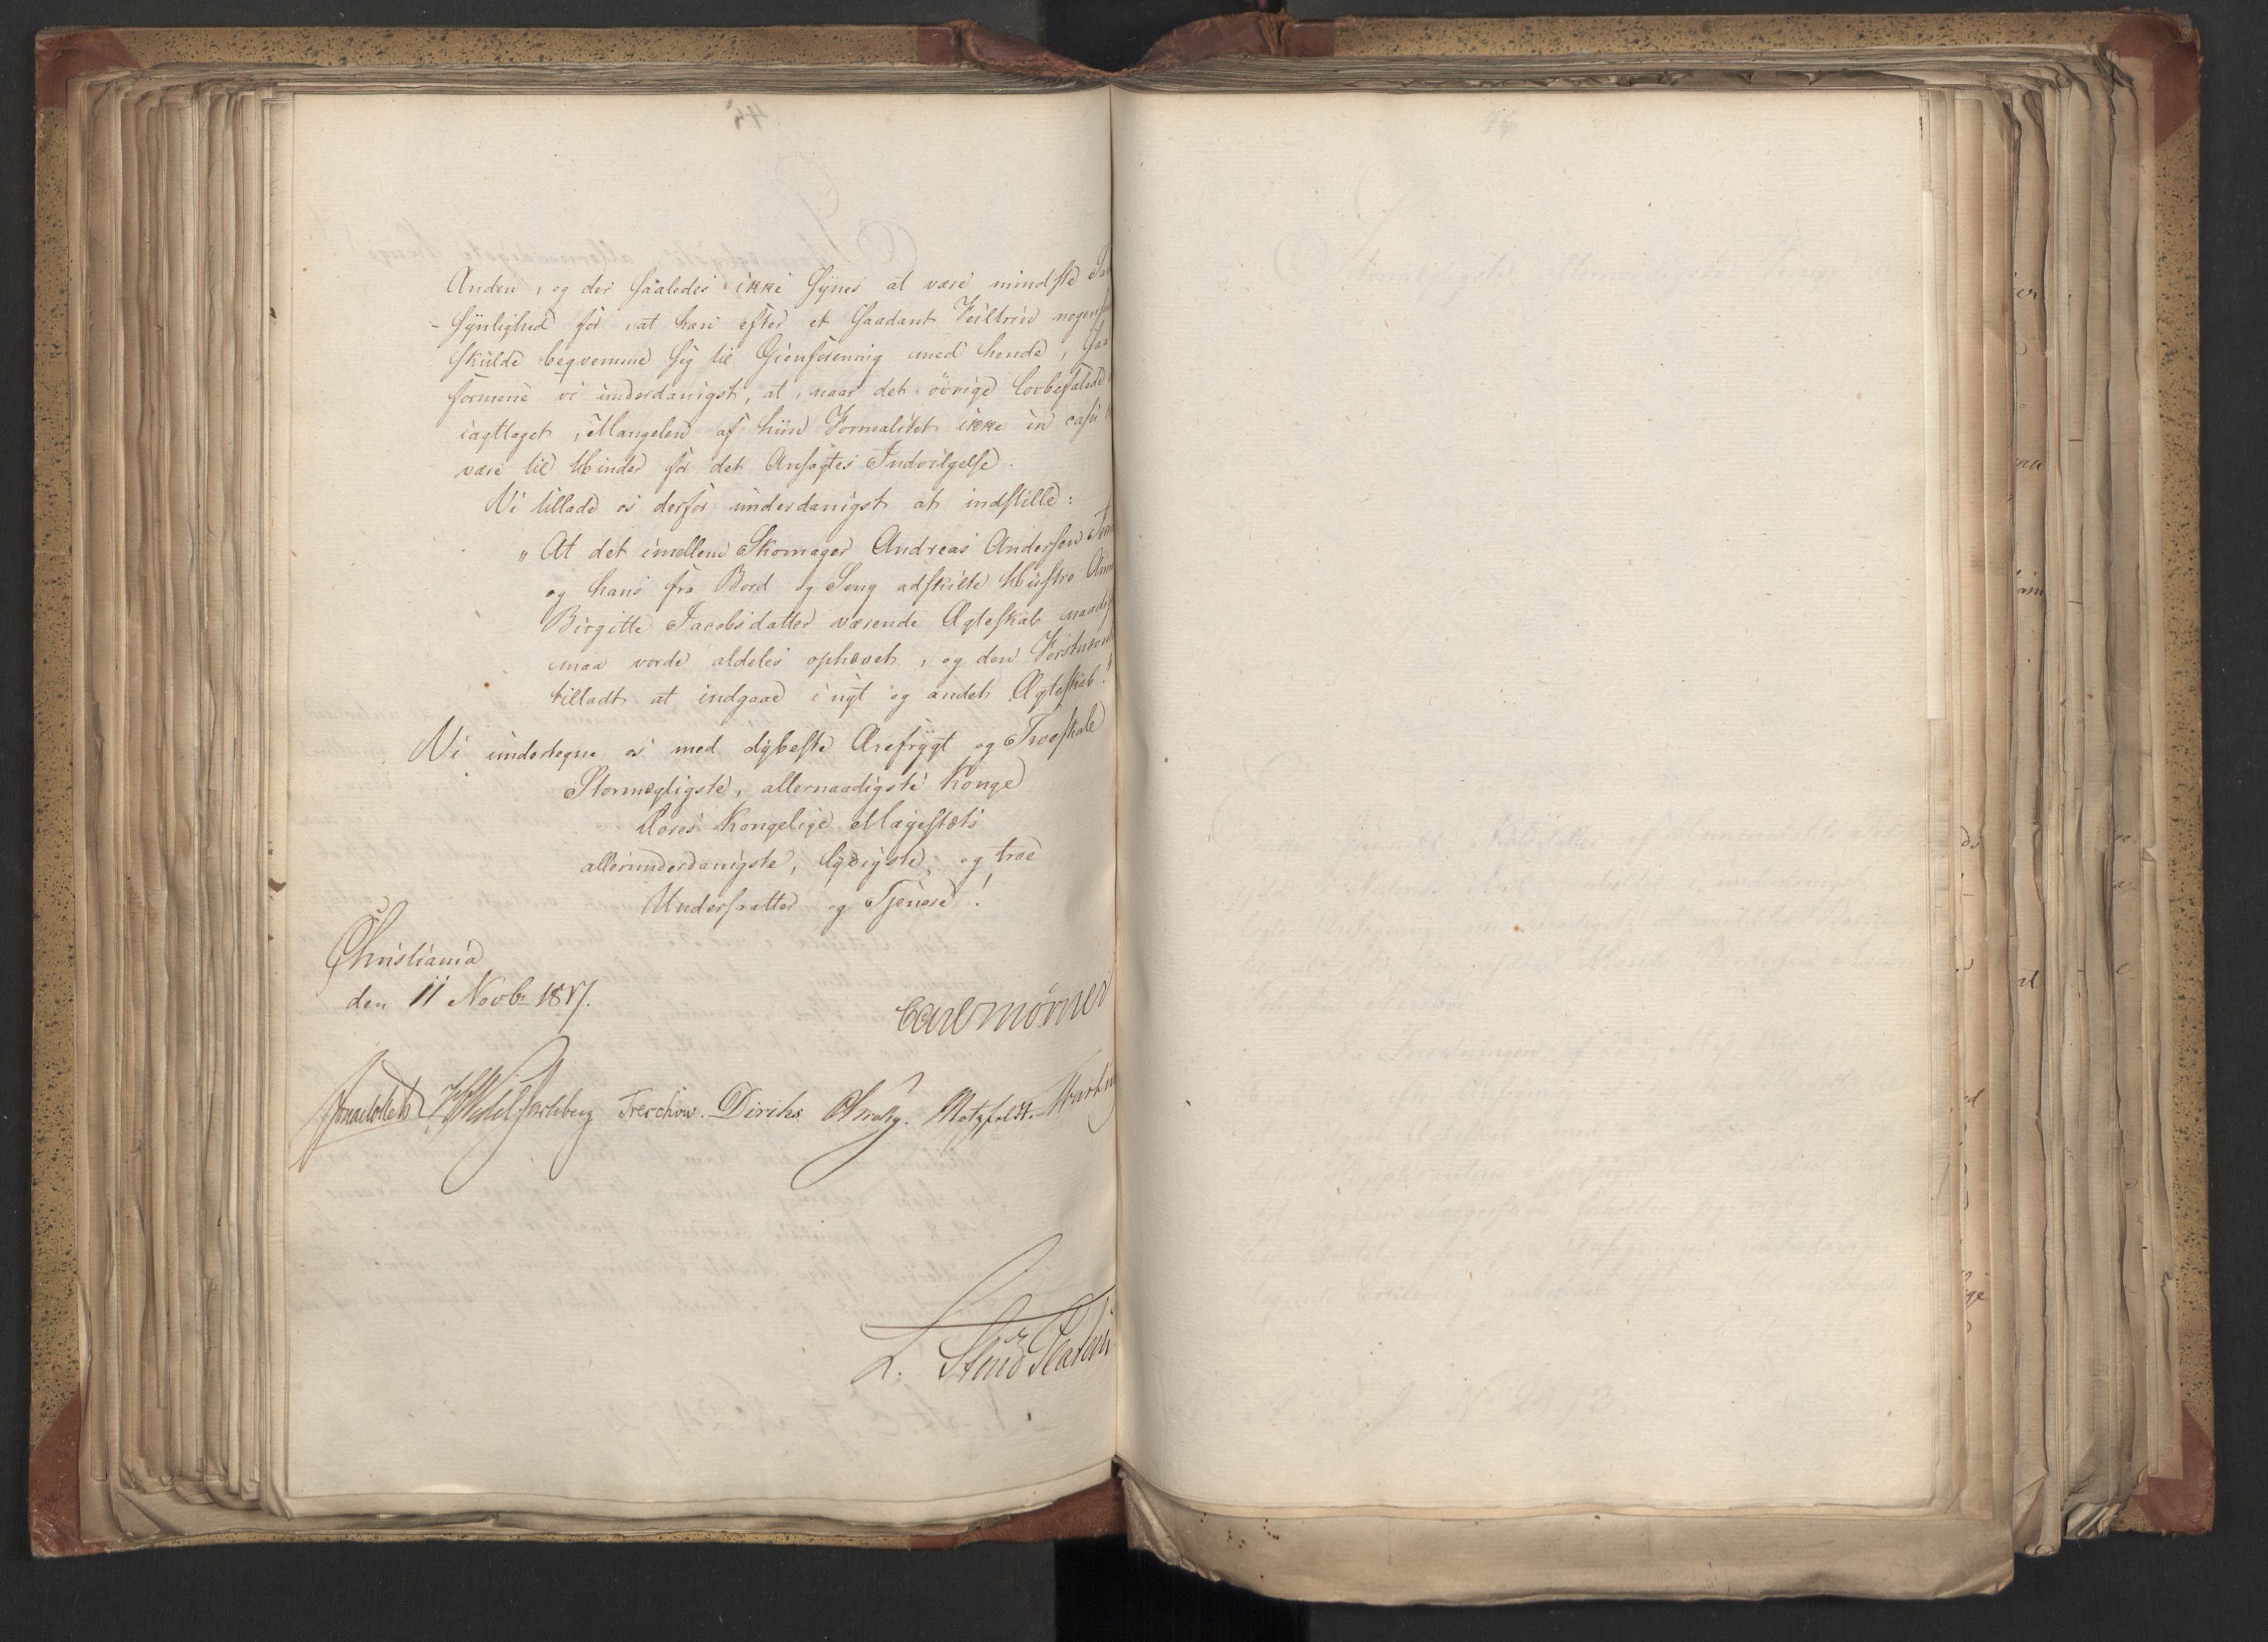 Anden, og der saaledes ikke synes at være mindste
-synlighed for, at han efter et saadant Feiltrin
skulde beqvemme sig til Gienforening med hende, saa
formene vi underdanigst, at, naar det øvrige lovbefalede
iagttaget, Mangelen af hiin Formalitet ikke in casu
være til Hinder for det Ansøgtes Indvilgelse.
Vi tillade os derfor underdanigst at indstille:
"At det imellem Skomager Andreas Andersen
og hans fra Bord og Seng adskilte Hustro
Birgitte Jacobsdatter værende Ægteskab
maa vorde aldeles ophævet, og den
tilladt at indgaae i nyt og andet Ægteskab."
Vi undertegne os med dybeste Ærefrygt og Troeskab
Stormægtigste, allernaadigste Konge
Deres Kongelige Majestæts
allerunderdanigste, lydigste og troe
Undersaatter og Tjenere!
Christiania
den 11 Novbr 1817.
Carl Mörner
Wedel Jarlsberg Treschow. Diriks Motzfeldt.
L. Stud Platou